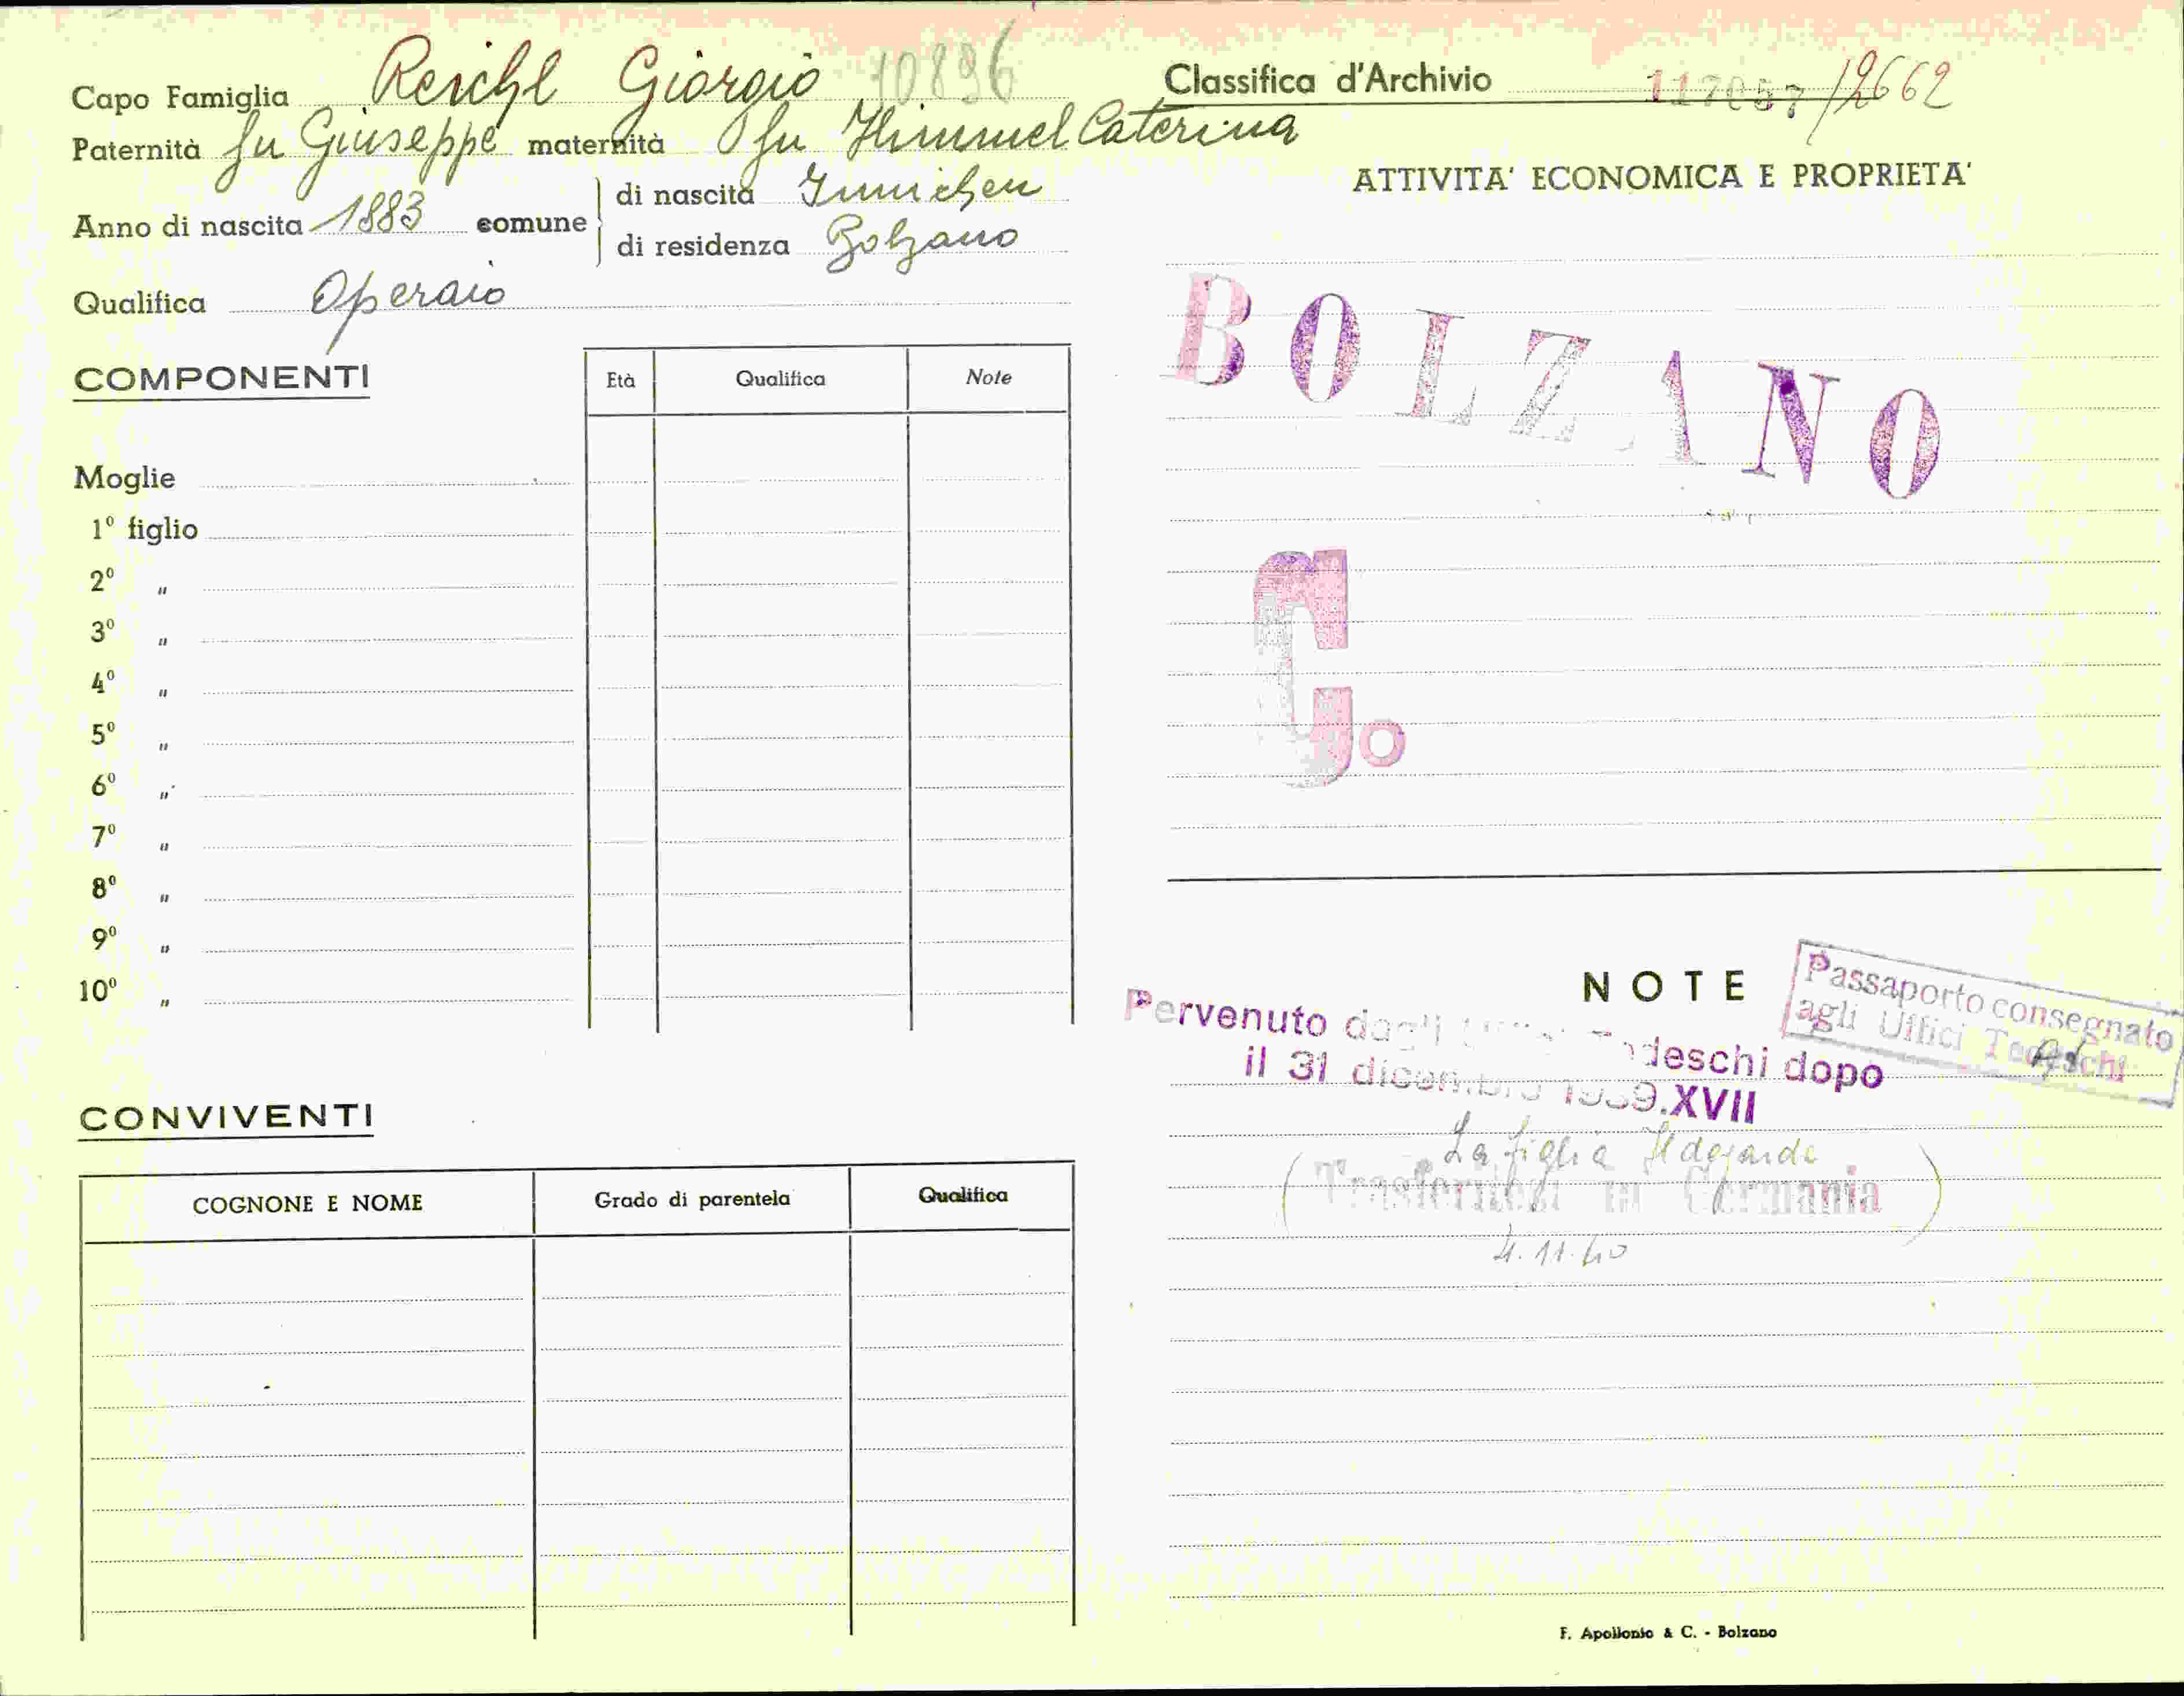 Capo Famiglia Reichl Giorgio 10896
Paternità fu Giuseppe maternità fu Himmel Caterina
Anno di nascita 1883 comune di nascita Innichen
di residenza Bolzano
Qualifica Operaio
COMPONENTI
Età Qualifica Note
Moglie
1º figlio
2º "
3º "
4º "
5º "
6º "
7º "
8º "
9º "
10º "
CONVIVENTI
COGNONE E NOME Grado di parentela Qualifica
Classifica d'Archivio 117057/2662
ATTIVITA' ECONOMICA E PROPRIETA'
BOLZANO
C.o
NOTE
Passaporto consegnato
agli Uffici Tedeschi
Pervenuto dagli Tedeschi dopo
il 31 dicembre 1939.XVII
La figlia Ildegarde
(Trasferitesi in Germania)
4.11.40
F. Apollonio & C. - Bolzano